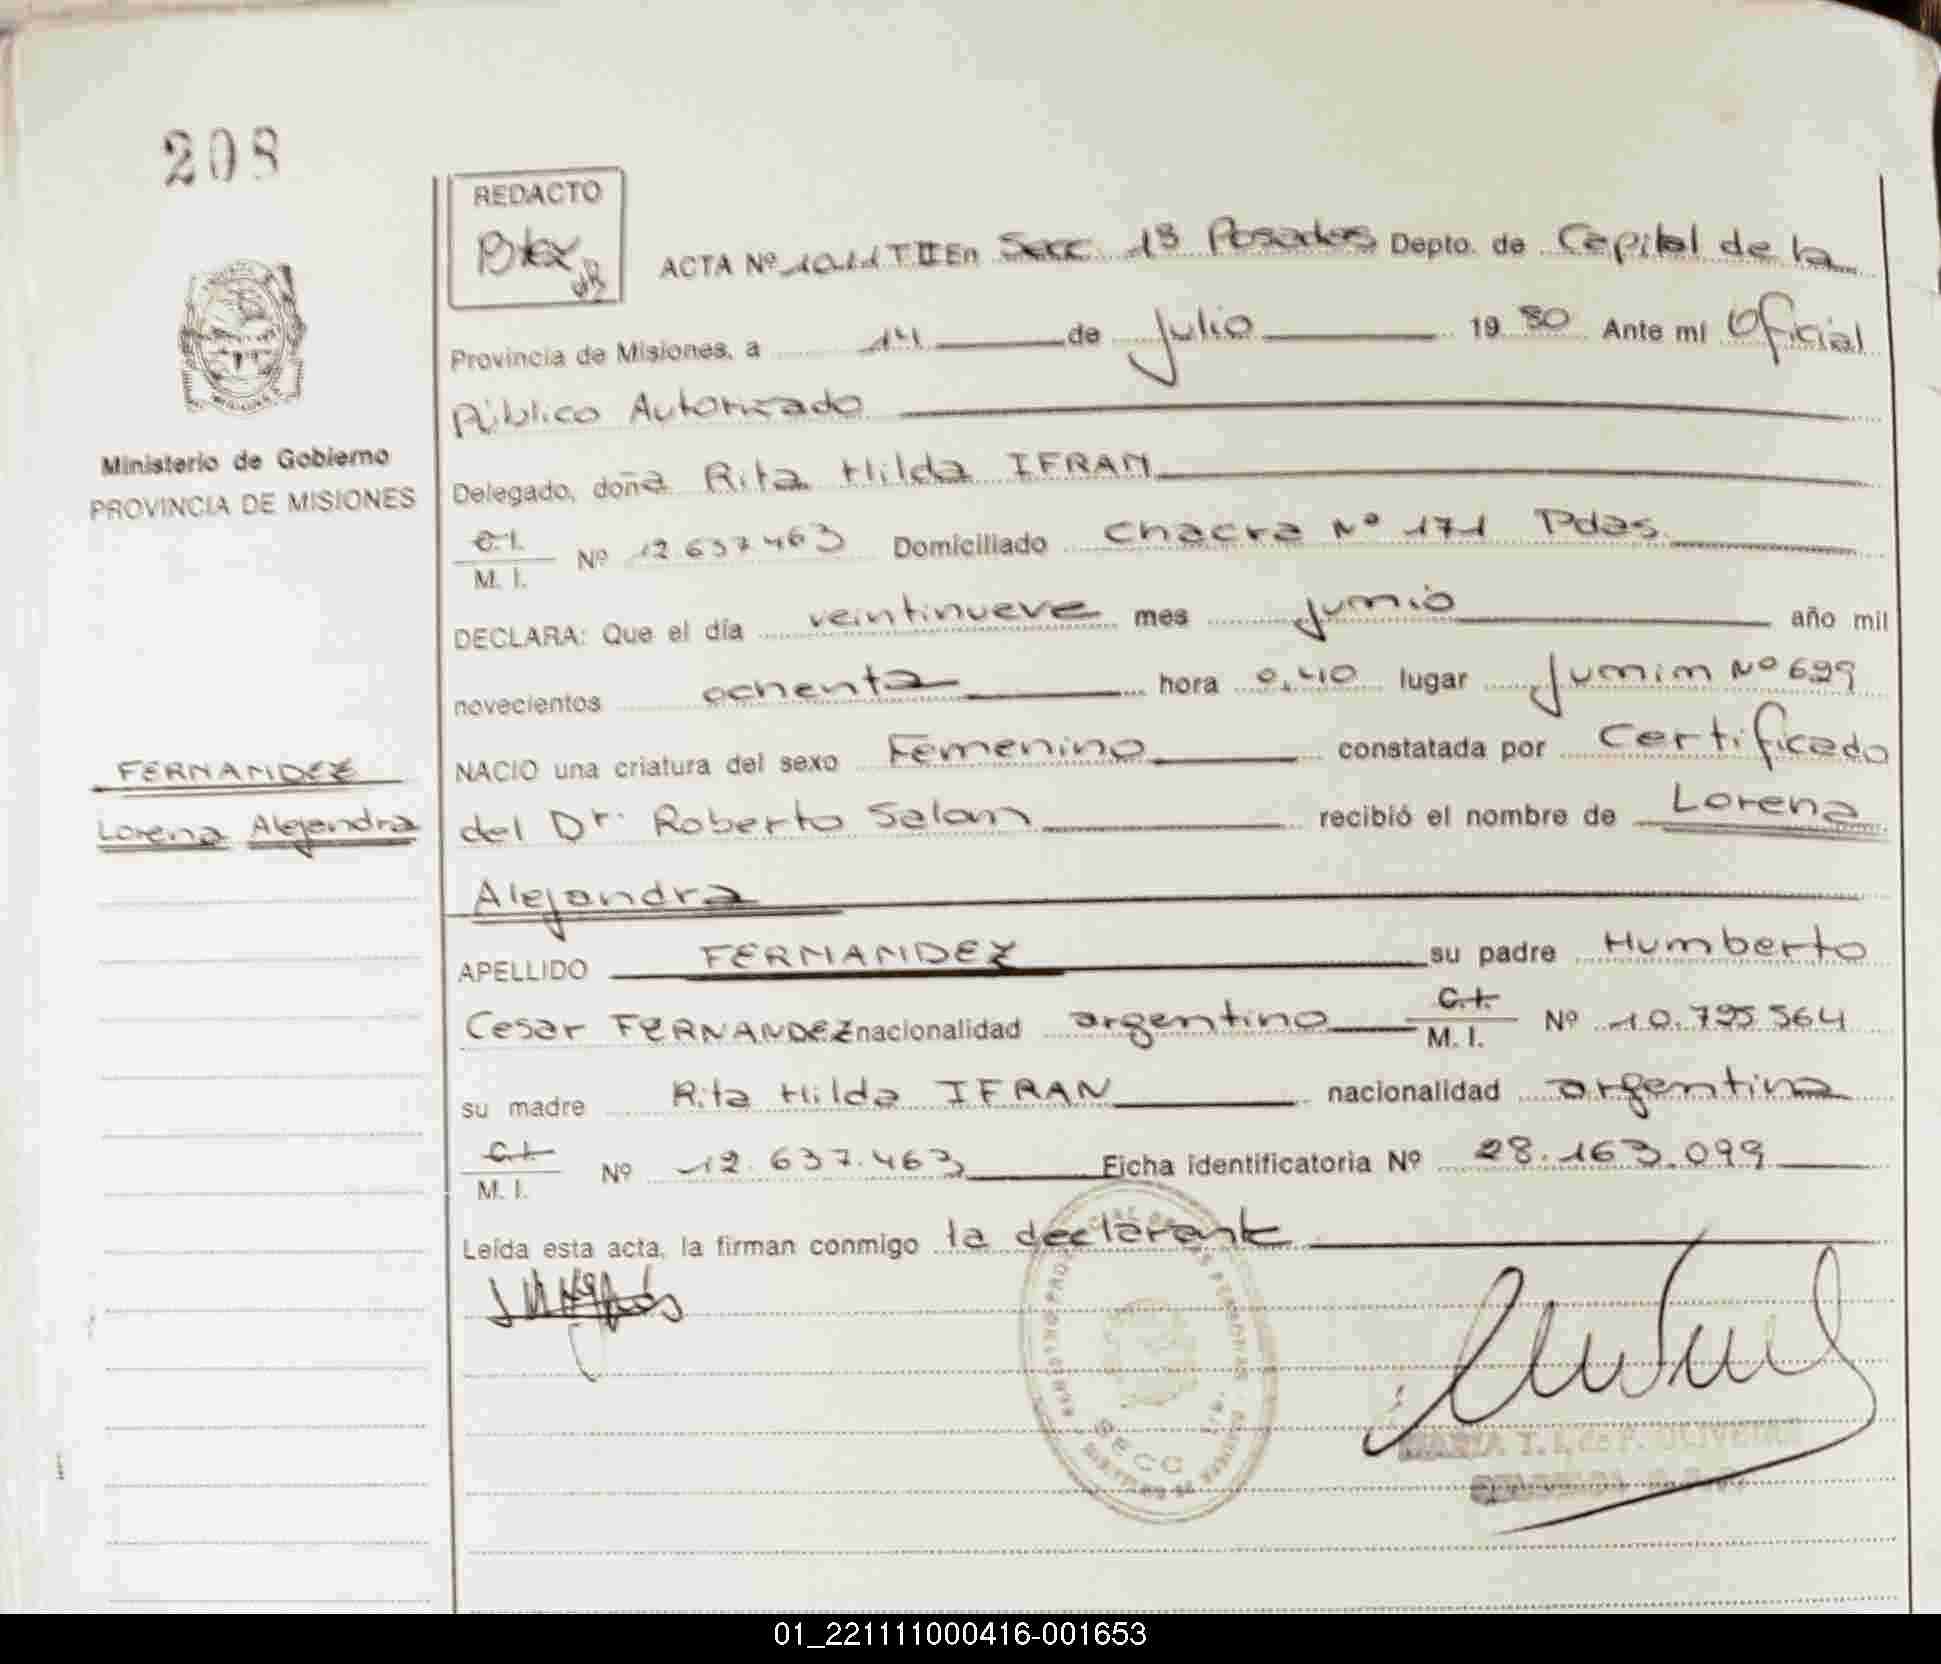 208
REDACTO
ACTA Nº 1011 T II En Secc. 1ª Posadas Depto. de Capital de la
Provincia de Misiones, a 14 de Julio 1980 Ante mí Oficial
Público Autorizado
Ministerio de Gobierno
PROVINCIA DE MISIONES
Delegado, doña Rita Hilda IFRAN
C.I.
M. I. Nº 12.637.463 Domiciliado Chacra Nº 171 Pdas.
DECLARA: Que el día veintinueve mes junio año mil
novecientos ochenta hora 0,40 lugar Junin Nº 629
NACIO una criatura del sexo Femenino constatada por Certificado
FERNANDEZ
Lorena Alejandra
del Dr. Roberto Salom recibió el nombre de Lorena
Alejandra
APELLIDO FERNANDEZ su padre Humberto
Cesar FERNANDEZ nacionalidad argentino C.I.
M. I. Nº 10.795.564
su madre Rita Hilda IFRAN nacionalidad argentina
C.I.
M. I. Nº 12.637.463 Ficha identificatoria Nº 28.163.099
Leída esta acta, la firman conmigo la declarante
SECC
MARIA T. I. de P. OLIVEIRA
01_221111000416-001653